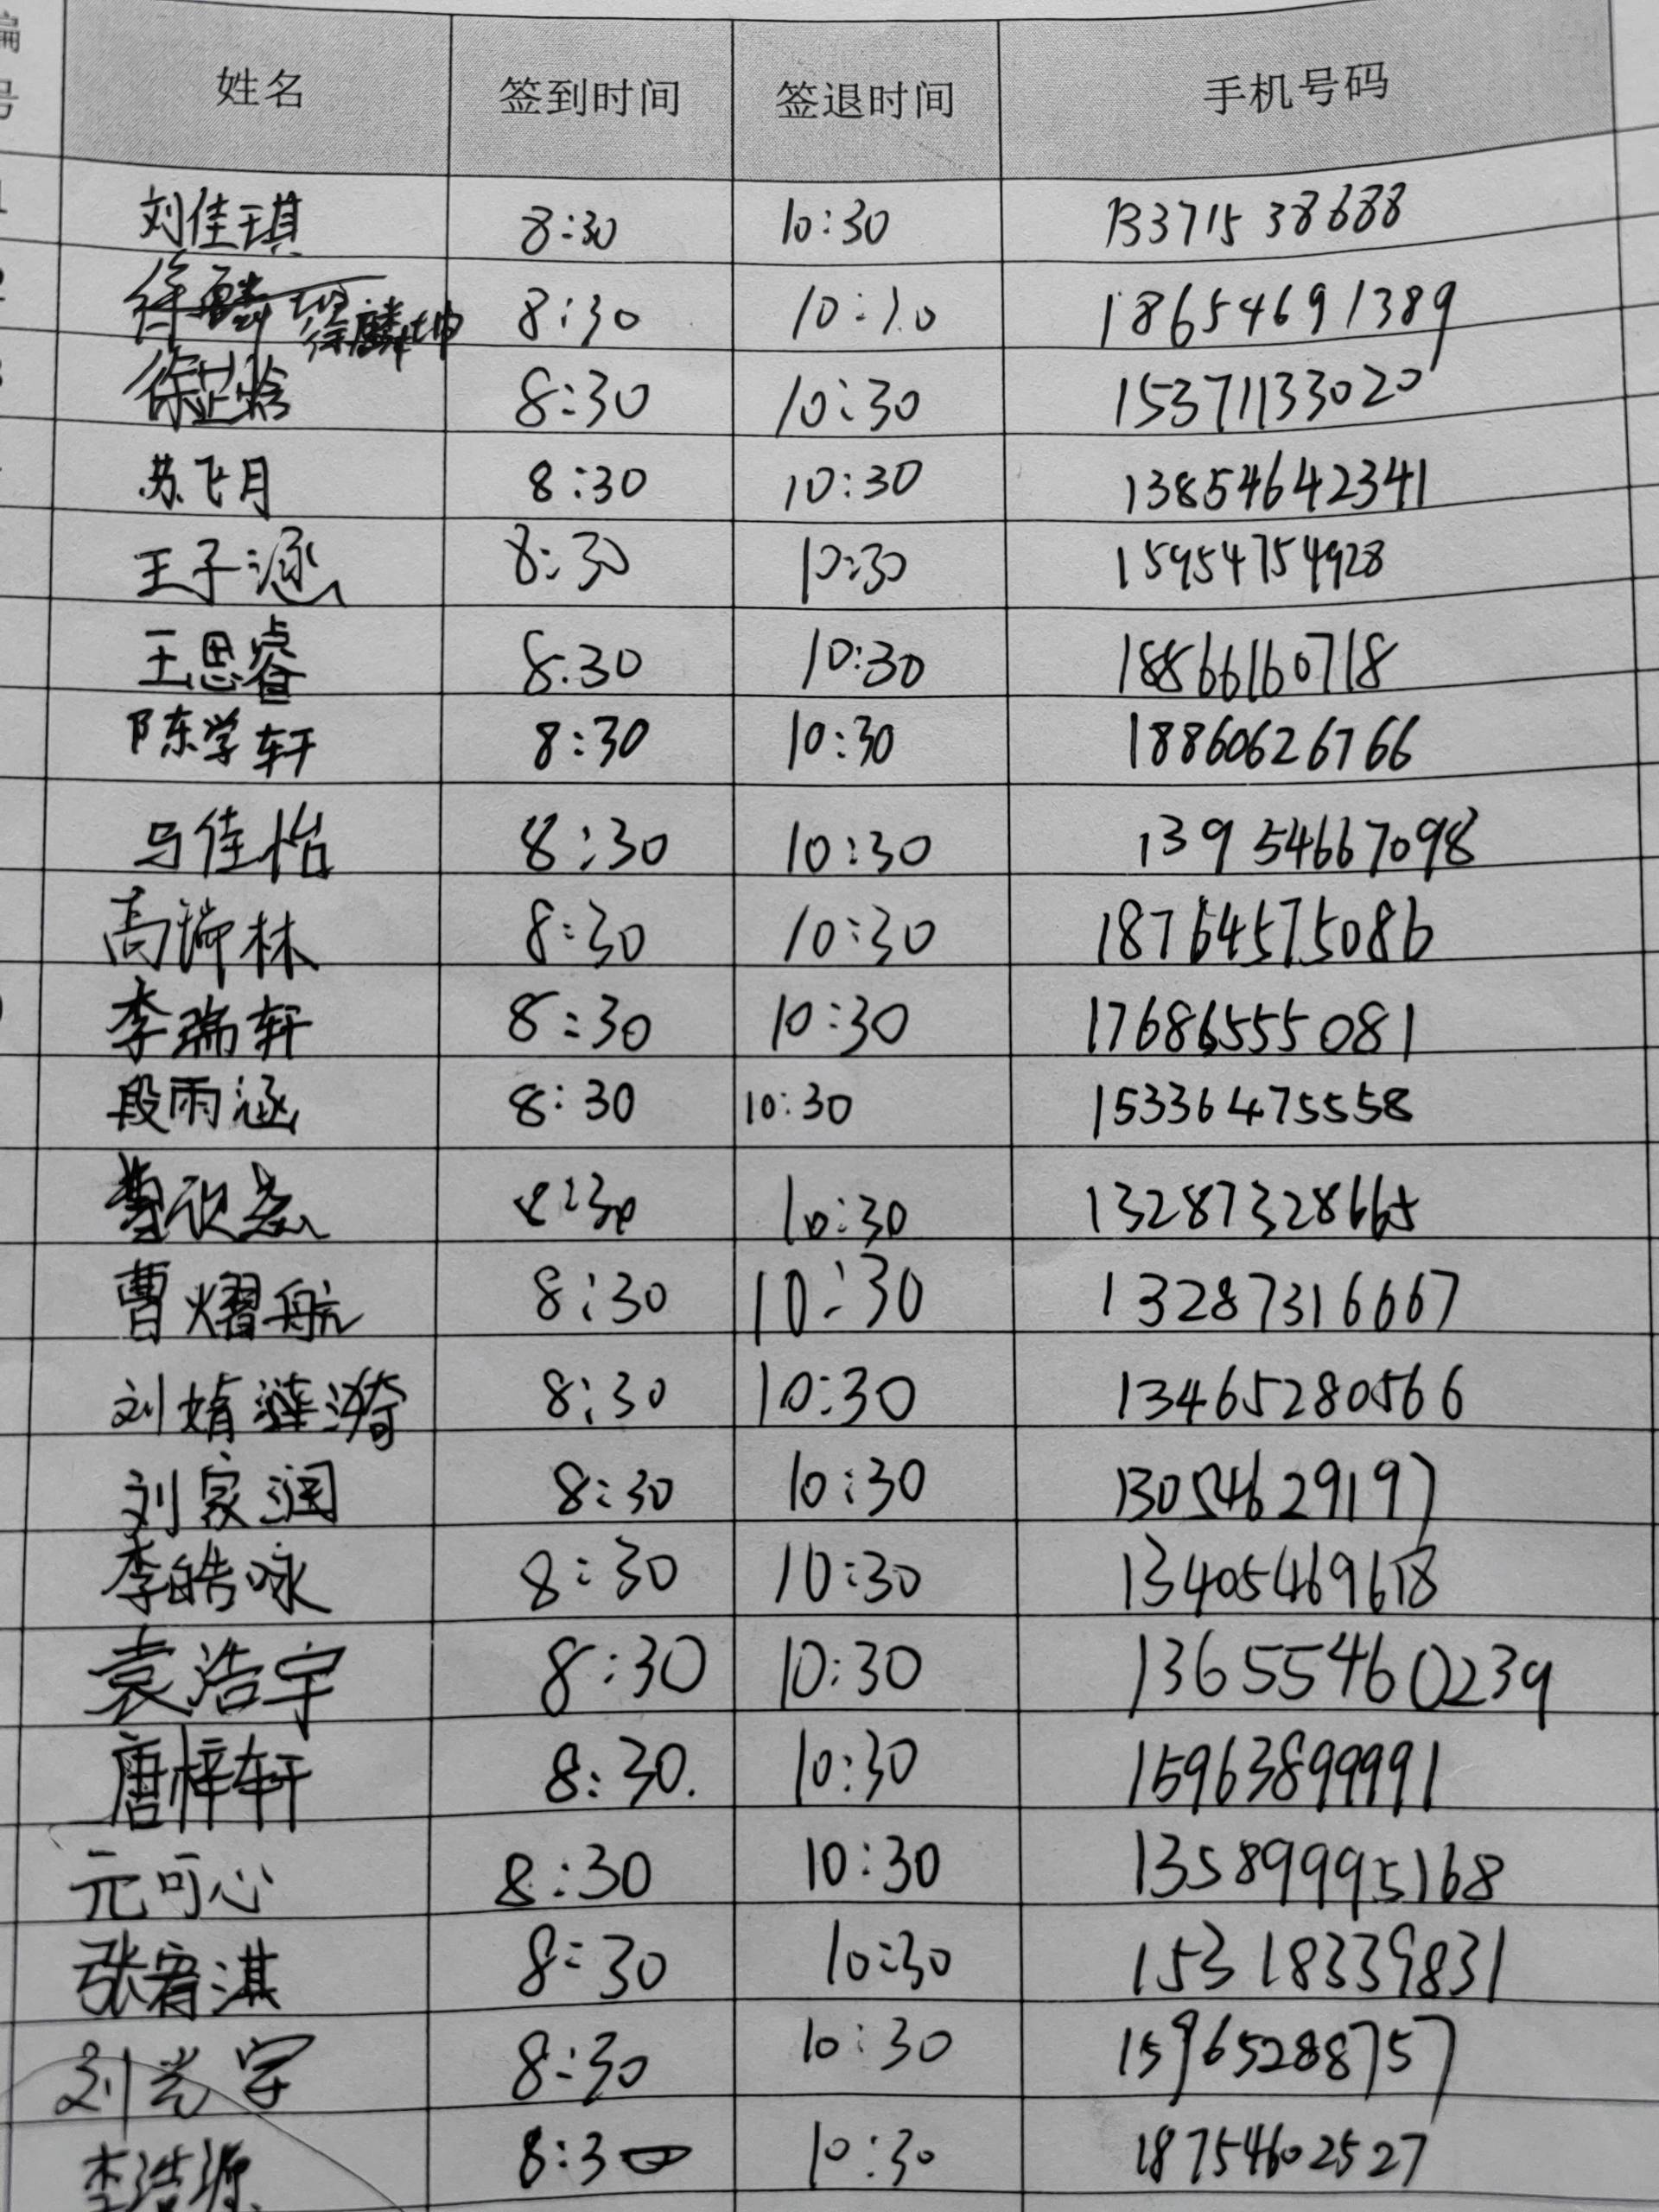 编号 姓名 签到时间 签退时间 手机号码
1 刘佳琪 8:30 10:30 13371538688
2 徐麟坤 8:30 10:30 18654691389
3 徐芷晗 8:30 10:30 15371133020
苏飞月 8:30 10:30 13854642341
王子涵 8:30 10:30 15954754928
王思睿 8:30 10:30 18866160718
陈学轩 8:30 10:30 18860626766
马佳怡 8:30 10:30 13954667098
高瑞林 8:30 10:30 18764575086
李瑞轩 8:30 10:30 17686555081
段雨涵 8:30 10:30 15336475558
欣 8:30 10:30 13287328665
曹熠航 8:30 10:30 13287316667
刘婧涟漪 8:30 10:30 13465280566
刘家润 8:30 10:30 13054629197
李皓咏 8:30 10:30 13405469618
袁浩宇 8:30 10:30 13655460239
唐梓轩 8:30. 10:30 15963899991
元可心 8:30 10:30 13589995168
张宥淇 8:30 10:30 15318339831
刘光宇 8:30 10:30 15965288757
李浩源 8:30 10:30 18754602527